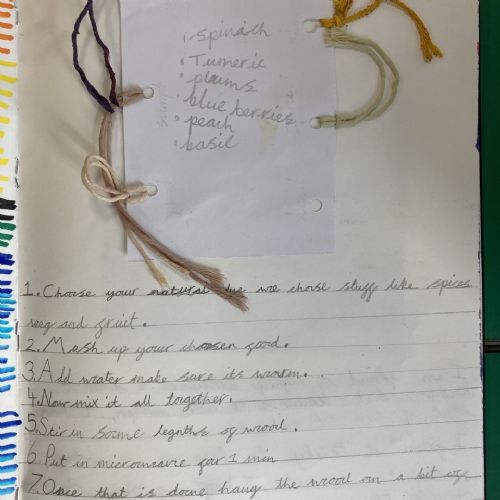 • spinach
• Tumeric
• plums
• blue berries
• peach
• basil
1. Choose your natural die we chose stuff like spices
veg and fruit.
2. Mash up your choosen food.
3. Add water make sure its warm.
4. Now mix it all together.
5. Stir in some legnths of wool.
6. Put in microwave for 1 min
7. Once that is done hang the wool on a bit of